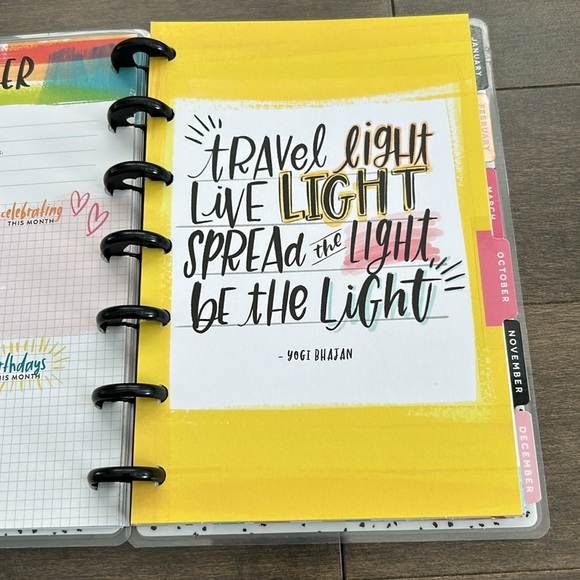 ER
celebrating
THIS MONTH
rthdays
IS MONTH
tRAVEL light
LIVE LIGHT
SPREAd the LIGHT
bE tHE LiGht
- YOGI BHAJAN
JANUARY
FEBRUARY
MARCH
OCTOBER
NOVEMBER
DECEMBER